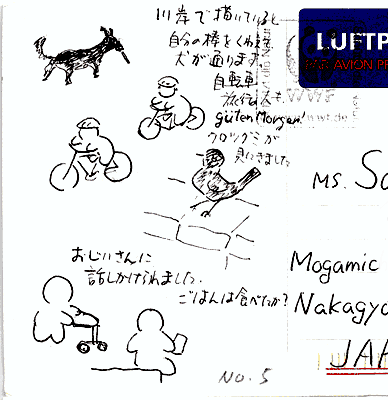 川岸で描いていると
自分の棒をくわえた
犬が通ります。
自転車
旅行の人も
guten Morgen!
クロツグミが
見にきました
おじいさんに
話しかけられました.
ごはんは食べたか?
NO. 5
LUFTP
PAR AVION PR
MS. So
Mogamic
Nakagyo
JAP